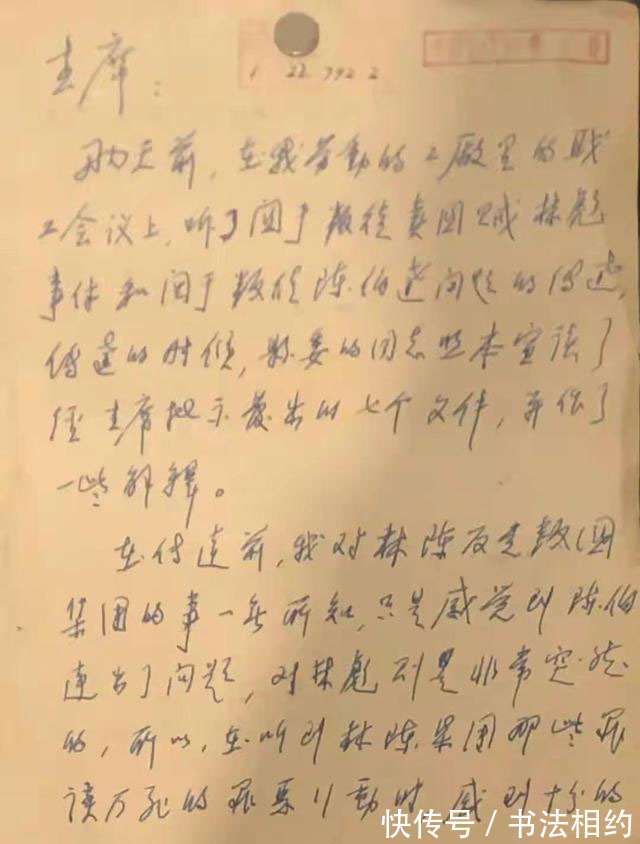 1 22 792 2
主席:
天前,在我劳動的工廠里的职
工会议上,听了関于叛徒卖国贼林彪
事件和関于叛徒陈伯達问题的傳達,
傳達的时候,县委的同志照本宣读了
经主席批示發出的七个文件,并作了
一些解釋。
在传達前,我对林陈反党叛国
集团的事一無所知,只是感觉到陈伯
達出了问题,对林彪则是非常突然
的,所以,在听到林陈集团那些罪
该万死的罪恶行動时,感到十分的
快传号/书法相约